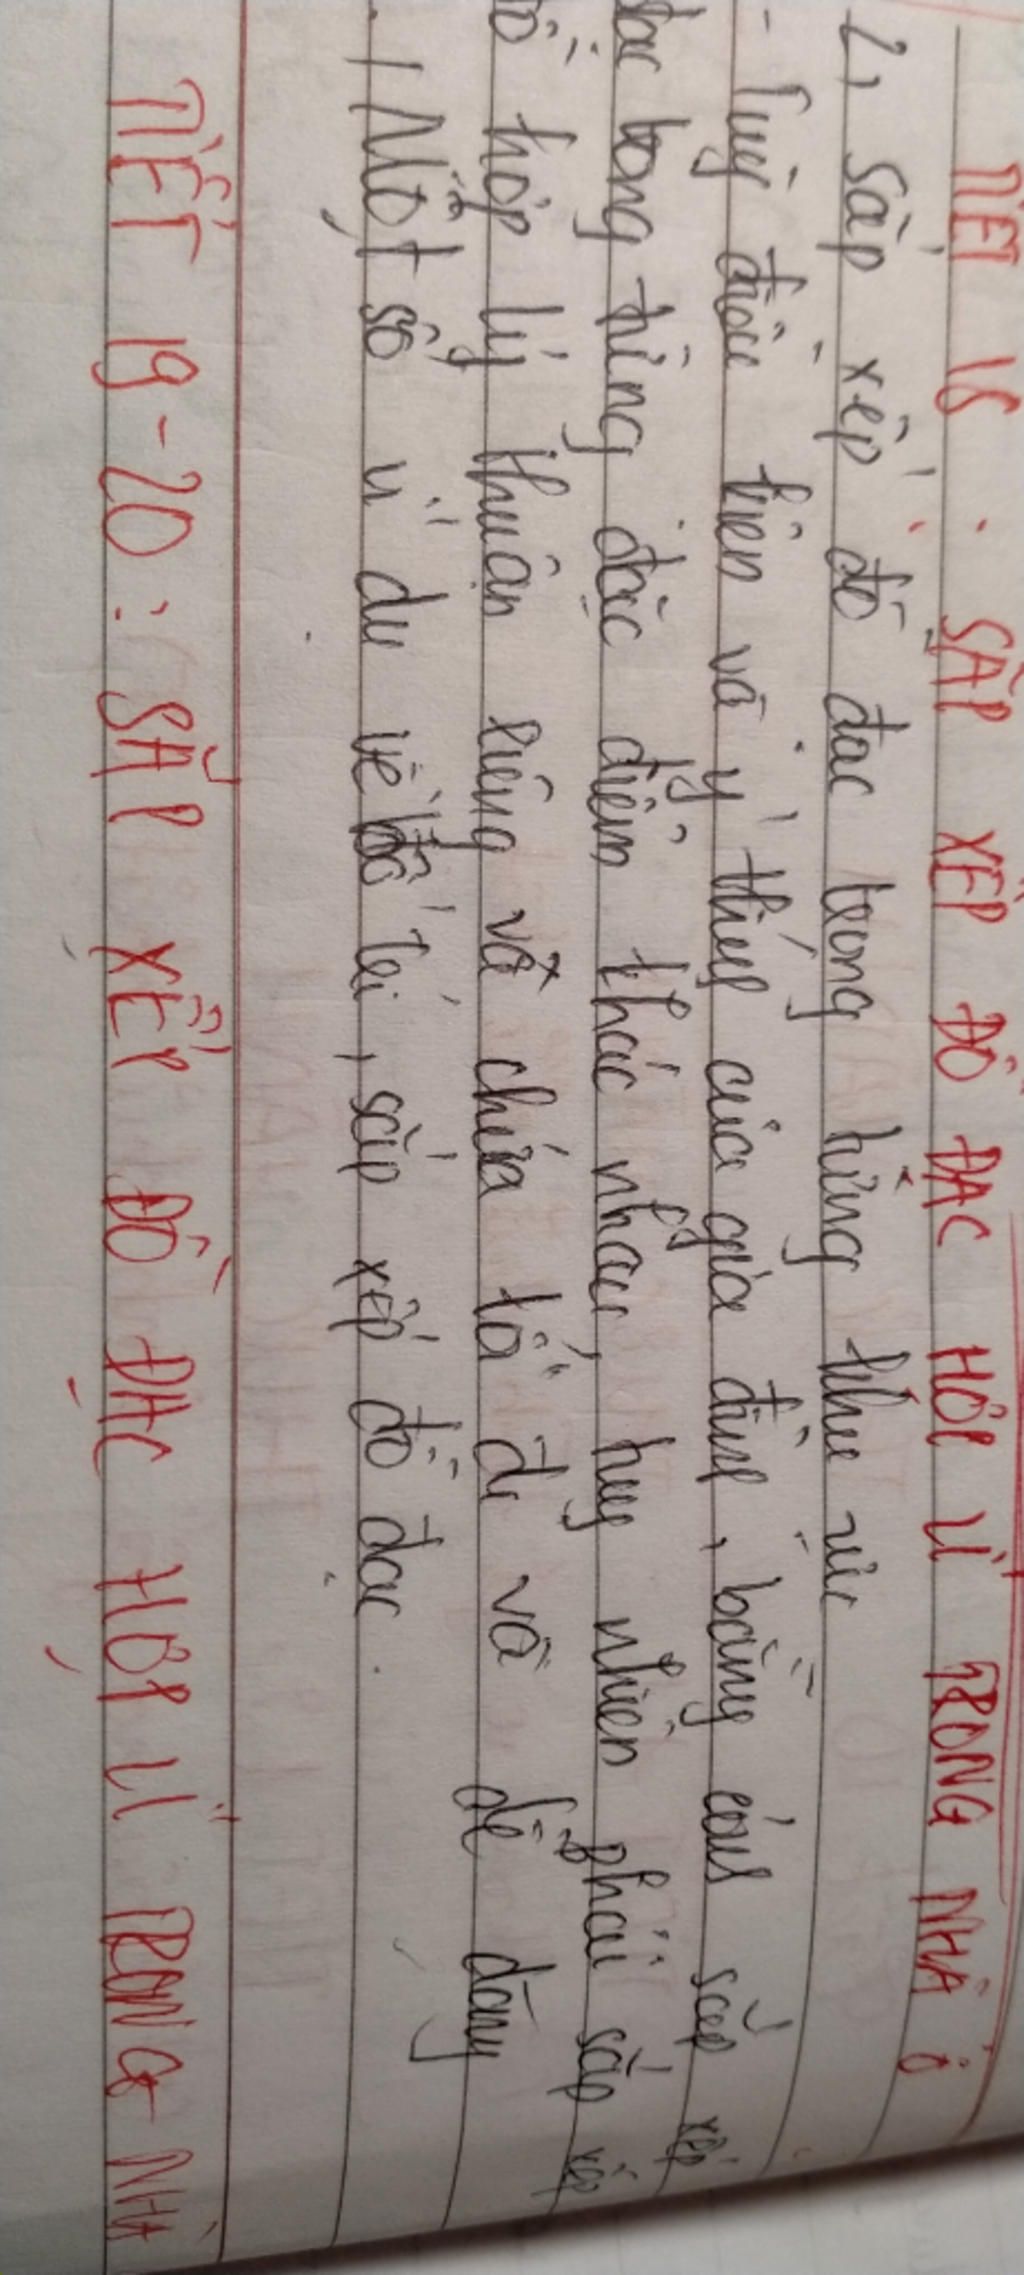 TIẾT 18 : SẮP XẾP ĐỒ ĐẠC HỢP LÍ TRONG NHÀ Ở
2, Sắp xếp đồ đạc trong từng khu vực
- Tuỳ điều kiện và ý thích của gia đình, bằng cách sắp xếp
đạc trong từng đặc điểm khác nhau, tuy nhiên phải sắp xếp
đồ hợp lý thuận tiện và chừa lối đi và dễ dàng
/ Một số ví dụ về bố trí, sắp xếp đồ đạc.
TIẾT 19-20 : SẮP XẾP ĐỒ ĐẠC HỢP LÍ TRONG NHÀ